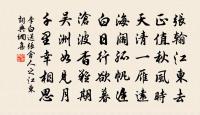 張翰江東去
正值秋風時
天清一雁遠
海闊孤帆遲
白日行欲暮
滄波杳難期
吳洲如見月
千里幸相思
李白送張舍人之江東
詞典網集